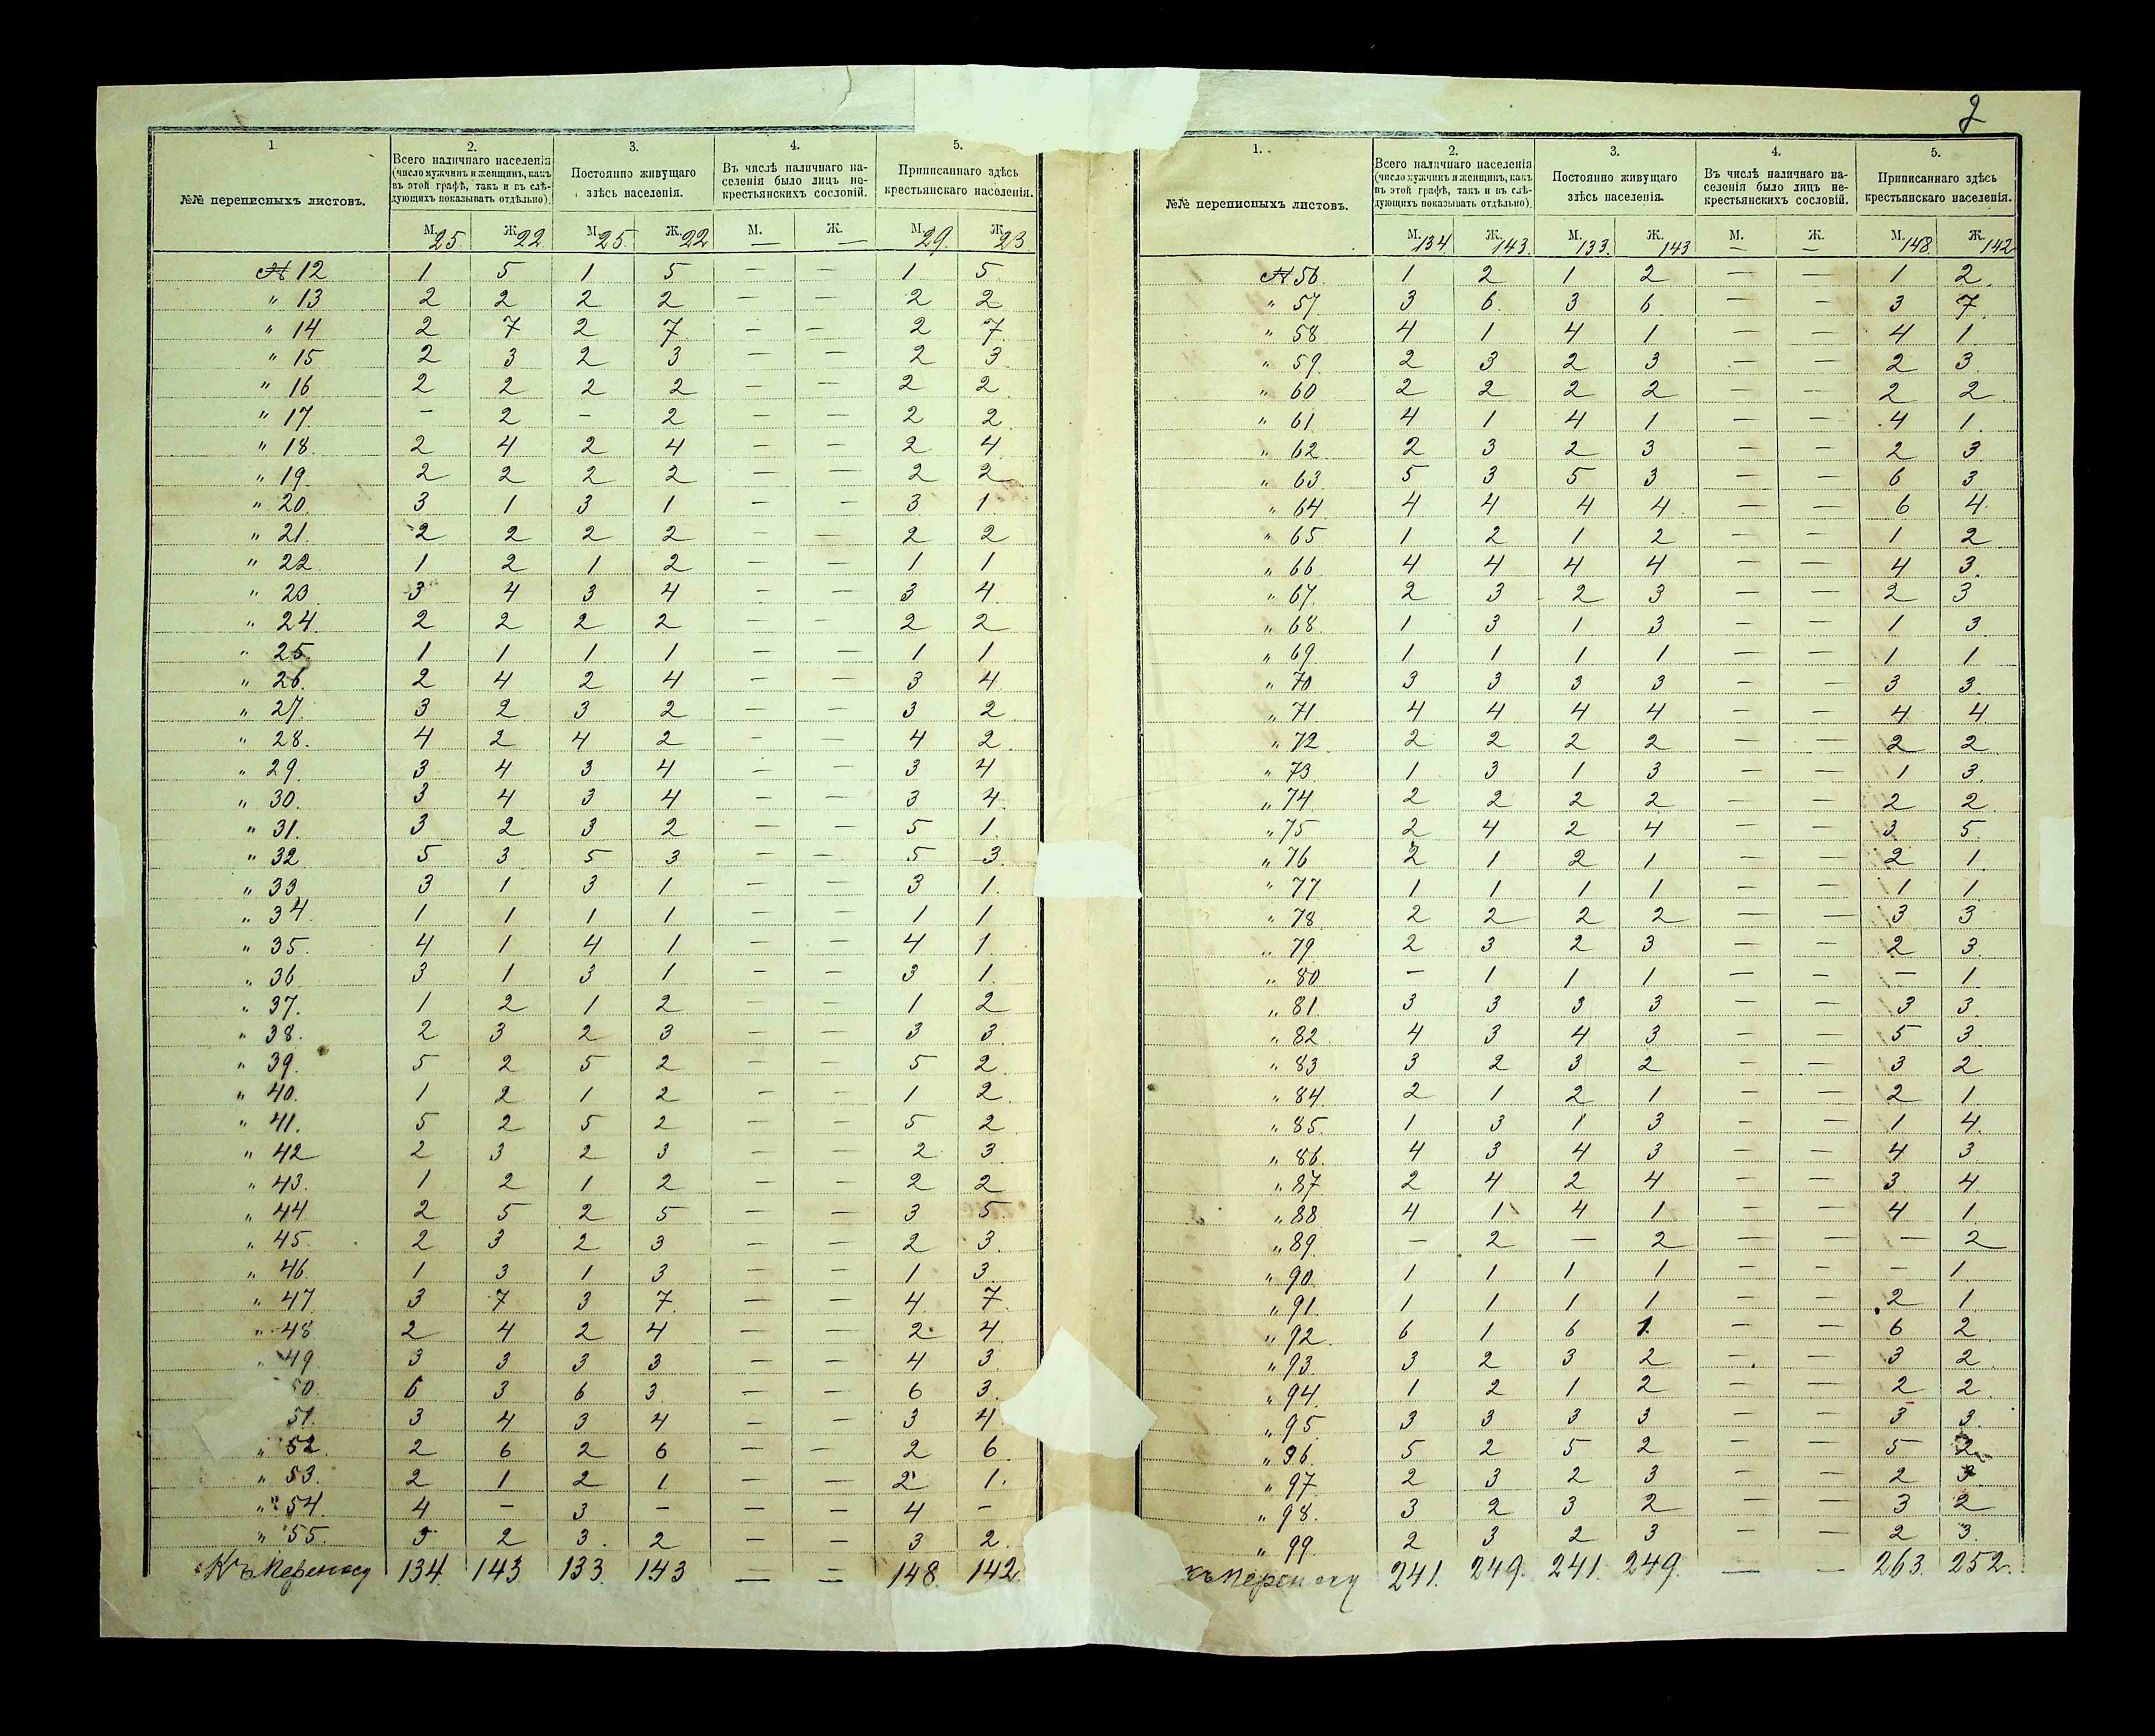 2
1.
№№ переписныхъ листовъ.
2.
Всего наличнаго населенія
(число мужчинъ и женщинъ, какъ
въ этой графѣ, такъ и въ слѣ-
дующихъ показывать отдѣльно).
3.
Постоянно живущаго
здѣсь населенія.
4.
Въ числѣ наличнаго на-
селенія было лицъ не-
крестьянскихъ сословій.
5.
Приписаннаго здѣсь
крестьянскаго населенія.
М. 25 Ж. 22 М. 25 Ж. 22 М. — Ж. — М. 29. Ж. 23
№ 12 1 5 1 5 — — 1 5
" 13 2 2 2 2 — — 2 2
" 14 2 7 2 7 — — 2 7
" 15 2 3 2 3 — — 2 3
" 16 2 2 2 2 — — 2 2
" 17. — 2 — 2 — — 2 2
" 18. 2 4 2 4 — — 2 4
" 19. 2 2 2 2 — — 2 2
" 20. 3 1 3 1 — — 3 1
" 21. 2 2 2 2 — — 2 2
" 22 1 2 1 2 — — 1 1
" 23 3 4 3 4 — — 3 4
" 24. 2 2 2 2 — — 2 2
" 25 1 1 1 1 — — 1 1
" 26. 2 4 2 4 — — 3 4
" 27. 3 2 3 2 — — 3 2
" 28. 4 2 4 2 — — 4 2
" 29. 3 4 3 4 — — 3 4
" 30. 3 4 3 4 — — 3 4
" 31. 3 2 3 2 — — 5 1
" 32 5 3 5 3 — — 5 3
" 33 3 1 3 1 — — 3 1
" 34 1 1 1 1 — — 1 1
" 35. 4 1 4 1 — — 4 1
" 36 3 1 3 1 — — 3 1
" 37. 1 2 1 2 — — 1 2
" 38. 2 3 2 3 — — 3 3
" 39. 5 2 5 2 — — 5 2
" 40. 1 2 1 2 — — 1 2
" 41. 5 2 5 2 — — 5 2
" 42 2 3 2 3 — — 2 3
" 43. 1 2 1 2 — — 2 2
" 44 2 5 2 5 — — 3 5
" 45. 2 3 2 3 — — 2 3
" 46. 1 3 1 3 — — 1 3
" 47 3 7 3 7 — — 4 7
" 48 2 4 2 4 — — 2 4
" 49. 3 3 3 3 — — 4 3
50. 6 3 6 3 — — 6 3
51. 3 4 3 4 — — 3 4
" 52. 2 6 2 6 — — 2 6
" 53. 2 1 2 1 — — 2 1
" 54. 4 — 3 — — — 4 —
" 55. 3 2 3 2 — — 3 2
Къ переносу 134. 143. 133. 143 — — 148. 142.
1.
№№ переписныхъ листовъ.
2.
Всего наличнаго населенія
(число мужчинъ и женщинъ, какъ
въ этой графѣ, такъ и въ слѣ-
дующихъ показывать отдѣльно).
3.
Постоянно живущаго
здѣсь населенія.
4.
Въ числѣ наличнаго на-
селенія было лицъ не-
крестьянскихъ сословій.
5.
Приписаннаго здѣсь
крестьянскаго населенія.
М. 134 Ж. 143. М. 133. Ж. 143 М. — Ж. — М. 148 Ж. 142
№ 56. 1 2 1 2 — — 1 2
" 57 3 6 3 6 — — 3 7
" 58 4 1 4 1 — — 4 1
" 59 2 3 2 3 — — 2 3
" 60 2 2 2 2 — — 2 2
" 61 4 1 4 1 — — 4 1
" 62 2 3 2 3 — — 2 3
" 63 5 3 5 3 — — 6 3
" 64 4 4 4 4 — — 6 4
" 65 1 2 1 2 — — 1 2
" 66 4 4 4 4 — — 4 3
" 67. 2 3 2 3 — — 2 3
" 68. 1 3 1 3 — — 1 3
" 69 1 1 1 1 — — 1 1
" 70 3 3 3 3 — — 3 3
" 71 4 4 4 4 — — 4 4
" 72 2 2 2 2 — — 2 2
" 73 1 3 1 3 — — 1 3
" 74 2 2 2 2 — — 2 2
" 75 2 4 2 4 — — 3 5
" 76 2 1 2 1 — — 2 1
" 77 1 1 1 1 — — 1 1
" 78 2 2 2 2 — — 3 3
" 79 2 3 2 3 — — 2 3
" 80 — 1 1 1 — — — 1
" 81 3 3 3 3 — — 3 3
" 82 4 3 4 3 — — 5 3
" 83 3 2 3 2 — — 3 2
" 84 2 1 2 1 — — 2 1
" 85. 1 3 1 3 — — 1 4
" 86. 4 3 4 3 — — 4 3
" 87 2 4 2 4 — — 3 4
" 88 4 1 4 1 — — 4 1
" 89 — 2 — 2 — — — 2
" 90. 1 1 1 1 — — — 1
" 91. 1 1 1 1 — — 2 1
" 92. 6 1 6 1 — — 6 2
" 93. 3 2 3 2 — — 3 2
" 94. 1 2 1 2 — — 2 2
" 95 3 3 3 3 — — 3 3
" 96. 5 2 5 2 — — 5 2
" 97 2 3 2 3 — — 2 3
" 98. 3 2 3 2 — — 3 2
" 99. 2 3 2 3 — — 2 3
къ переносу 241. 249. 241. 249. — — 263. 252.